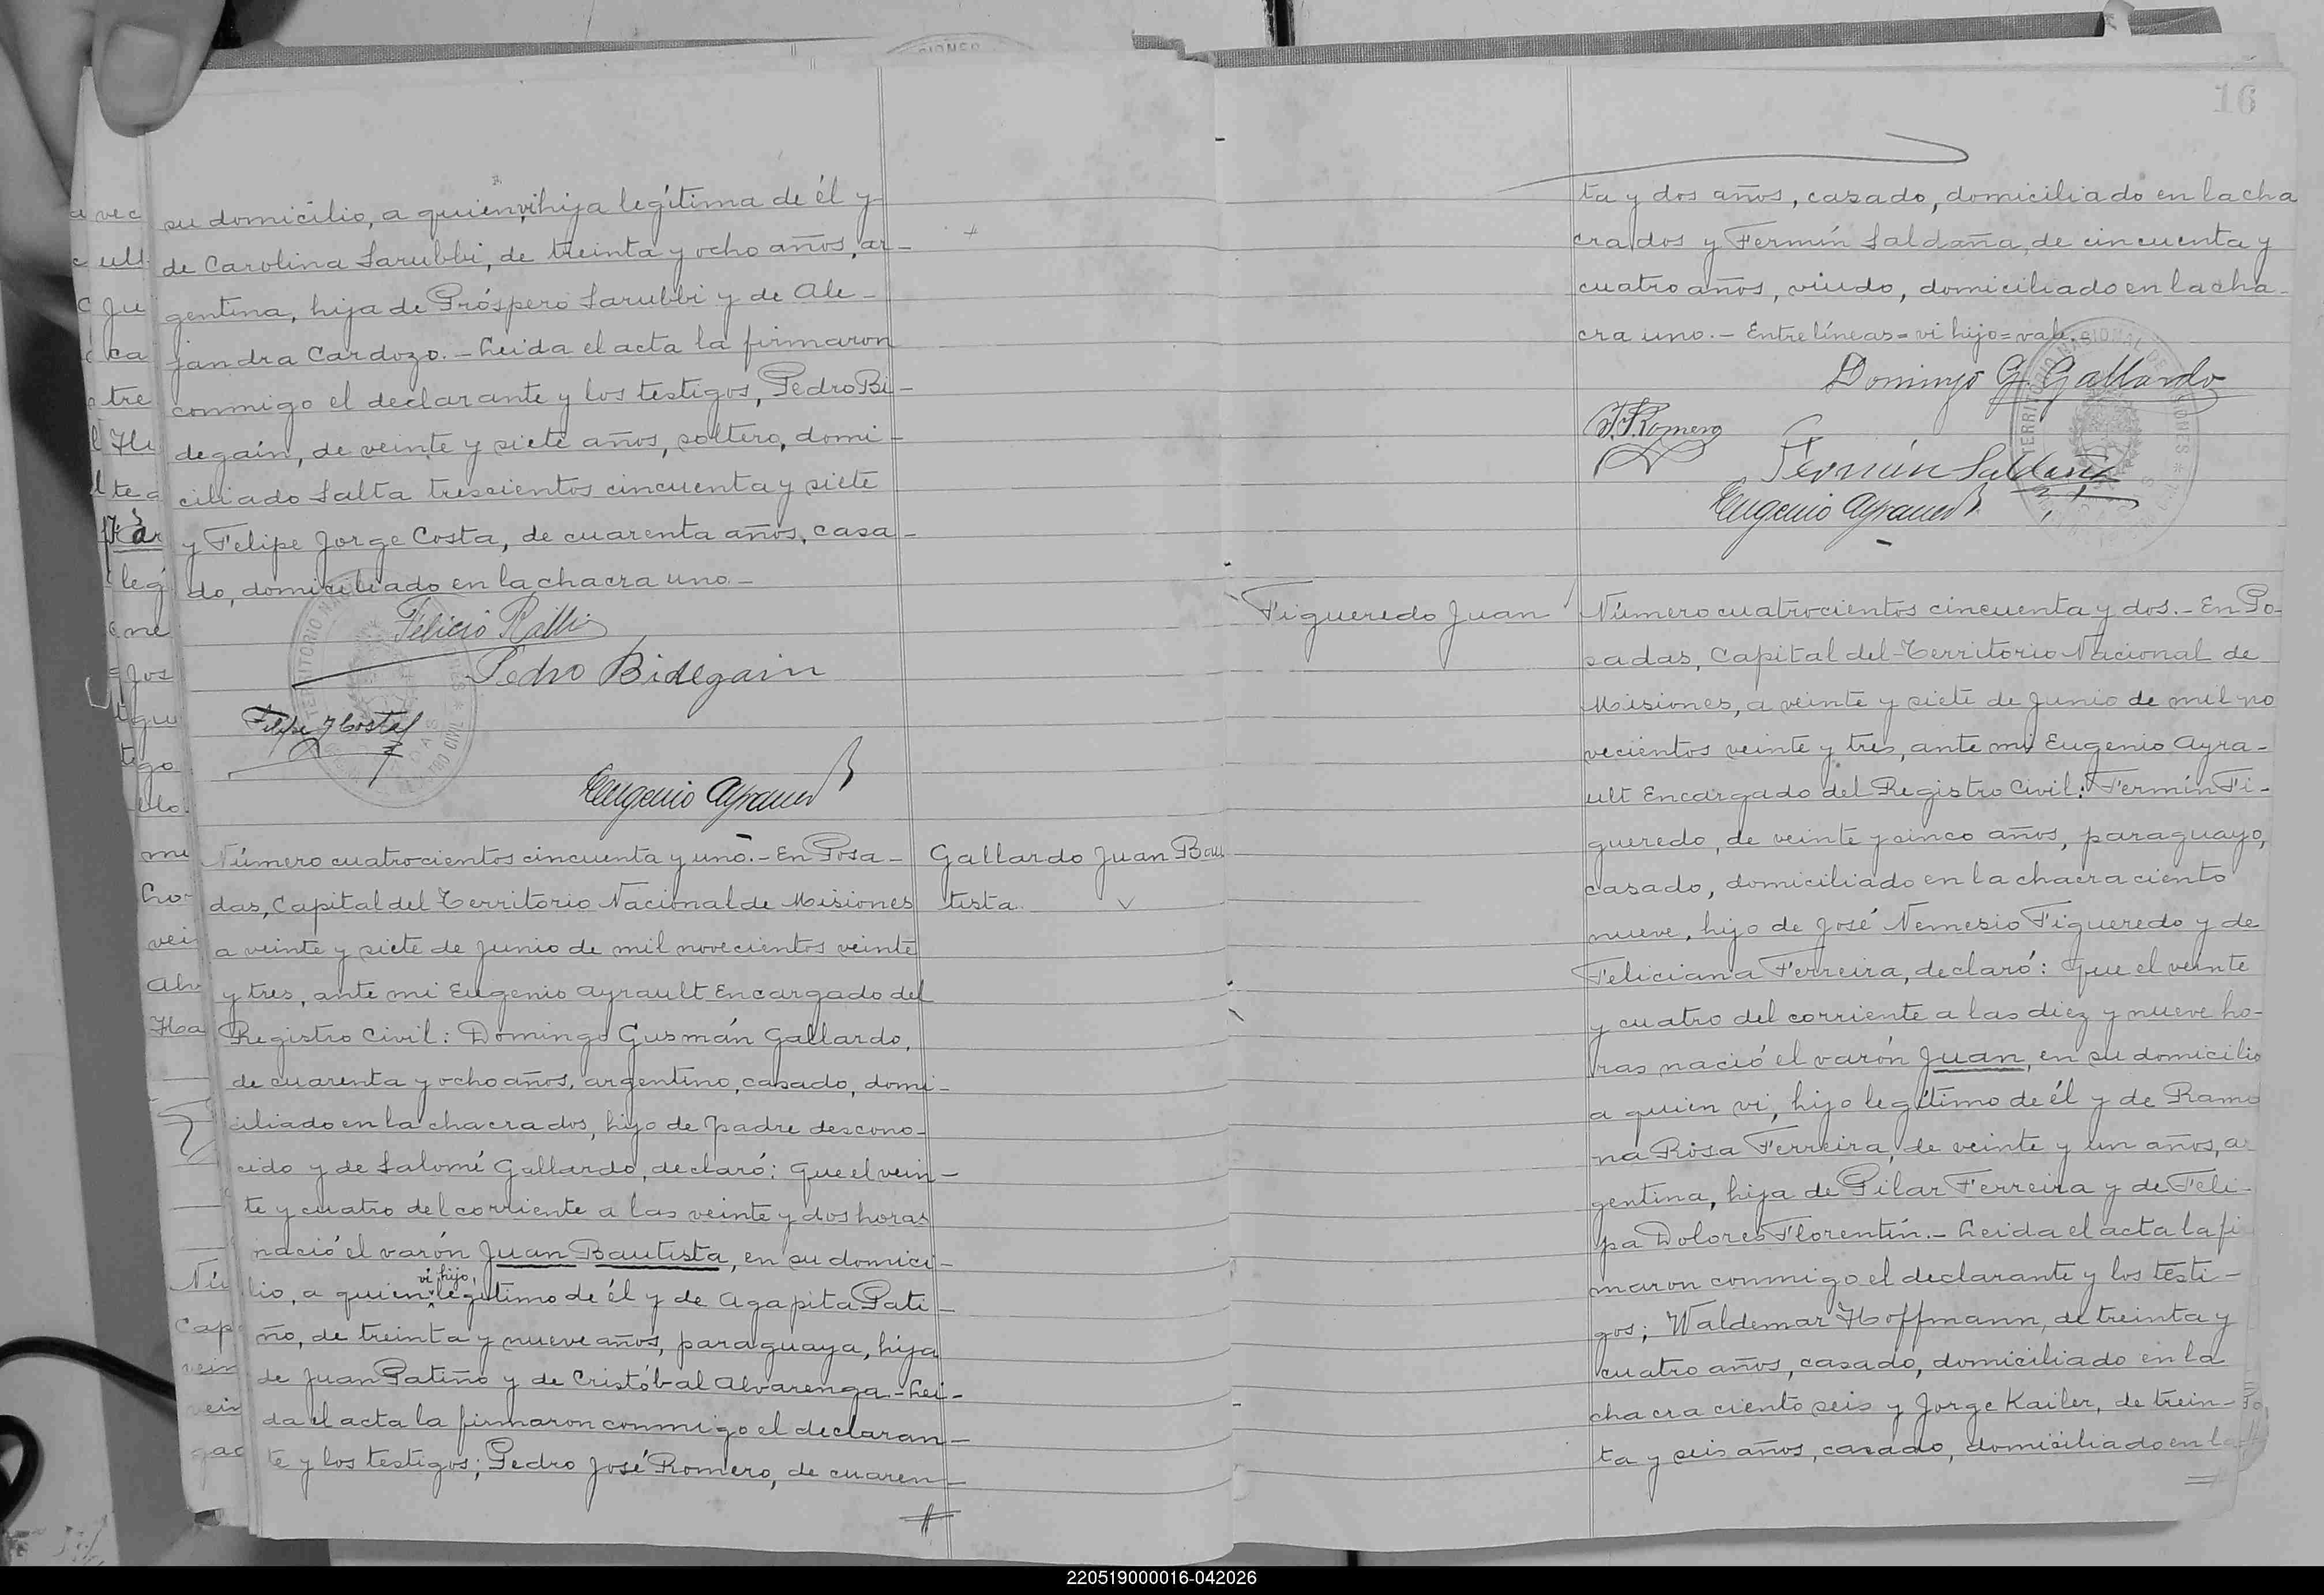 su domicilio, a quien vi hija legítima de él y
de Carolina Sarubbi, de treinta y ocho años, ar-
gentina, hija de Próspero Sarubbi y de Ale-
jandra Cardozo.- Leida el acta la firmaron
conmigo el declarante y los testigos, Pedro Bi-
degain, de veinte y siete años, soltero, domi-
ciliado Salta trescientos cincuenta y siete
y Felipe Jorge Costa, de cuarenta años, casa-
do, domiciliado en la chacra uno.-
Felicio
Pedro Bidegain
Felipe J Costa
Eugenio Ayrault
Gallardo Juan Bau
tista
Número cuatrocientos cincuenta y uno.- En Posa-
das, Capital del Territorio Nacional de Misiones
a veinte y siete de Junio de mil novecientos veinte
y tres, ante mi Eugenio Ayrault Encargado del
Registro Civil: Domingo Gusmán Gallardo,
de cuarenta y ocho años, argentino, casado, domi-
ciliado en la chacra dos, hijo de padre descono-
cido y de Salomé Gallardo, declaró: Que el vein-
te y cuatro del corriente a las veinte y dos horas
nació el varón Juan Bautista, en su domici-
vi hijo,
lio, a quien legítimo de él y de Agapita Pati-
ño, de treinta y nueve años, paraguaya, hija
de Juan Patiño y de Cristóbal Alvarenga.- Lei-
da el acta la firmaron conmigo el declaran-
te y los testigos; Pedro José Romero, de cuaren-
16
ta y dos años, casado, domiciliado en la cha
cra dos y Fermín Saldaña, de cincuenta y
cuatro años, viudo, domiciliado en la cha-
cra uno.- Entre líneas=vi hijo=vale.
Domingo G. Gallardo
P.J.Romero
Fermín Saldaña
Eugenio Ayrault
Figueredo Juan
Número cuatrocientos cincuenta y dos.- En Po-
sadas, Capital del Territorio Nacional de
Misiones, a veinte y siete de Junio de mil no
vecientos veinte y tres, ante mi Eugenio Ayra-
ult Encargado del Registro Civil: Fermín Fi-
gueredo, de veinte y cinco años, paraguayo,
casado, domiciliado en la chacra ciento
nueve, hijo de José Nemesio Figueredo y de
Feliciana Ferreira, declaró: Que el veinte
y cuatro del corriente a las diez y nueve ho-
ras nació el varón Juan, en su domicilio
a quien vi, hijo legítimo de él y de Ramo
na Rosa Ferreira, de veinte y un años, ar
gentina, hija de Pilar Ferreira y de Feli-
pa Dolores Florentín.- Leida el acta la fi
maron conmigo el declarante y los testi-
gos; Waldemar Hoffmann, de treinta y
cuatro años, casado, domiciliado en la
chacra ciento seis y Jorge Kailer, de trein-
ta y seis años, casado, domiciliado en la
220519000016-042026